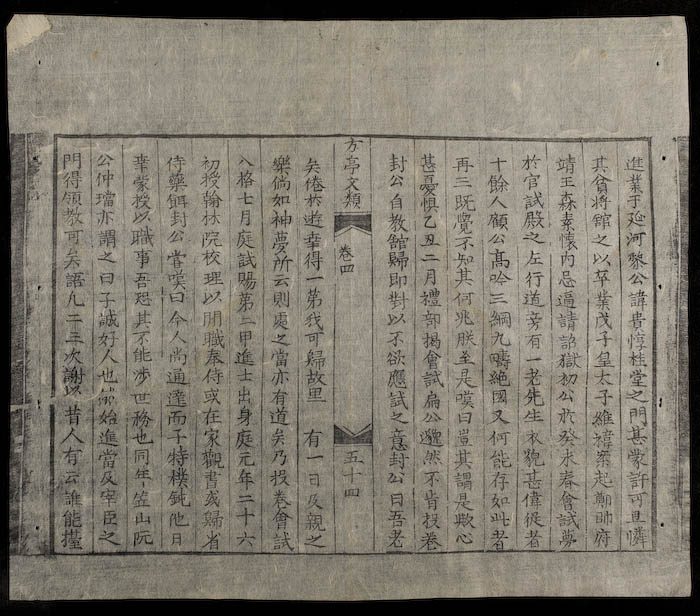 進業于延河黎公諱貴惇桂堂之門甚蒙許可且憐
其貧將館之以卒業戊子皇太子維禕案起鄭帥府
靖王森素懷內忌逼請詔獄初公於癸未春會試夢
於官試殿之左行道旁有一老先生衣貌甚偉從者
十餘人顧公高吟三綱九疇絕國又何能存如此者
再三既覺不知其何兆朕至是嘆曰豈其謂是歟心
甚憂懼乙丑二月禮部揭會試扁公邈然不肯投卷
封公自教館歸即對以不欲應試之意封公曰吾老
方亭文類
卷四
五十四
矣倦於遊幸得一第我可歸故里
有一日反親之
樂倘如神夢所云則處之當亦有道矣乃投卷會試
八格七月庭試賜第二甲進士出身庭元年二十六
初授翰林院校理以閒職奉侍或在家觀書或歸省
侍藥餌封公嘗嘆曰今人尚通達而子特樸鈍他日
幸蒙授以職事吾恐其不能涉世務也同年笠山阮
公仲璫亦謂之曰子誠好人也第始進當反宰臣之
門得領教可矣語凡二三次謝以昔人有云誰能擡